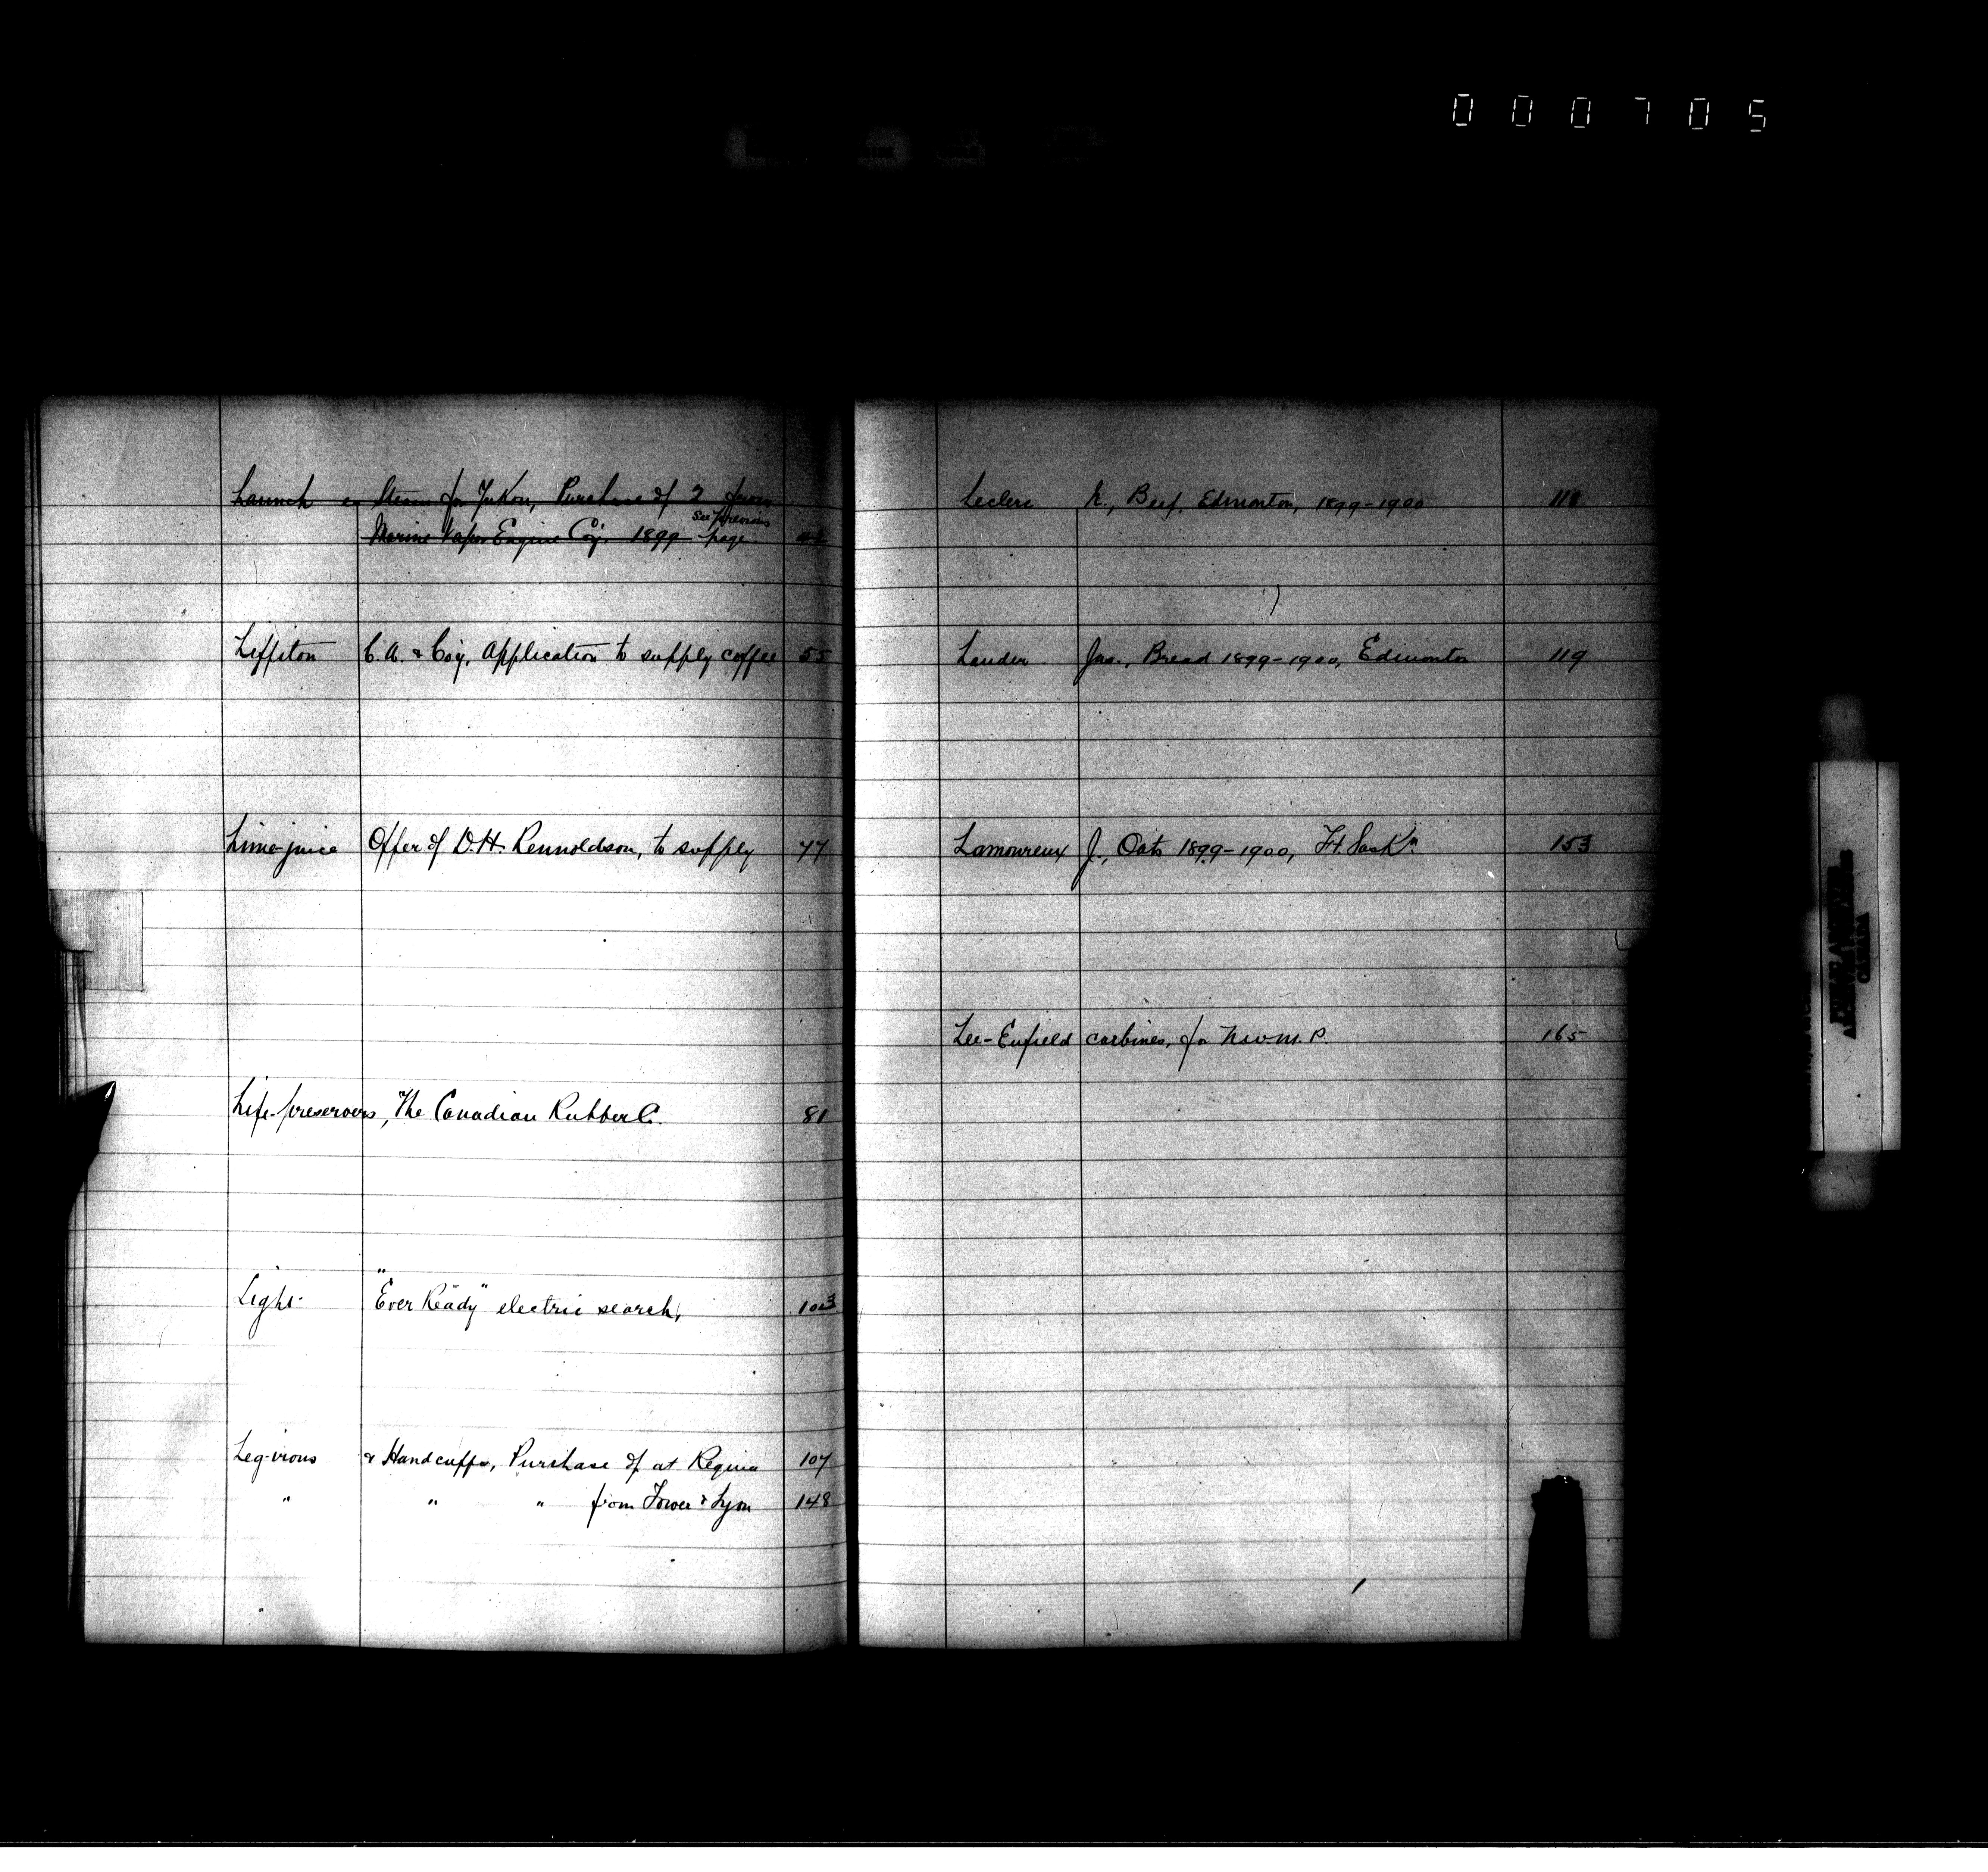 000705
Launch es Steam for Yukon, Purchase of 2 from
See previous
Marine Vapor Engine Coy. 1899 page.
Liffiton C.A. & Coy, Application to supply coffee 55
Lime-juice Offer of D.H. Rennoldson, to supply 77
Life-preservers, The Canadian Rubber Co. 81
Light "Ever Ready" electric search, 103
Leg-irons & Handcuffs, Purchase of at Regina 107
" " " from Tower & Lyon 148
Leclerc N., Beef, Edmonton, 1899-1900 118
Lauder Jas., Bread 1899-1900, Edmonton 119
Lamoureux J., Oats 1899-1900, Ft. Saskn. 153
Lee-Enfield carbines, for N.W.M.P. 165